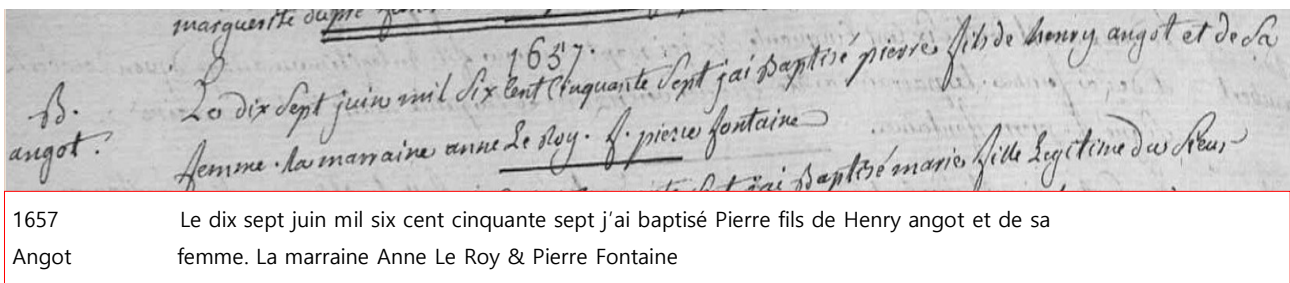 marguerite dupré
1657.
B. Le dix sept juin mil six Cent Cinquante Sept jai Baptisé pierre fils de henry angot et de Sa
angot. femme. la marraine anne Le Roy. f. pierre fontaine
jai Baptisé marie fille Legitime du Sieur
1657 Le dix sept juin mil six cent cinquante sept j'ai baptisé Pierre fils de Henry angot et de sa
Angot femme. La marraine Anne Le Roy & Pierre Fontaine